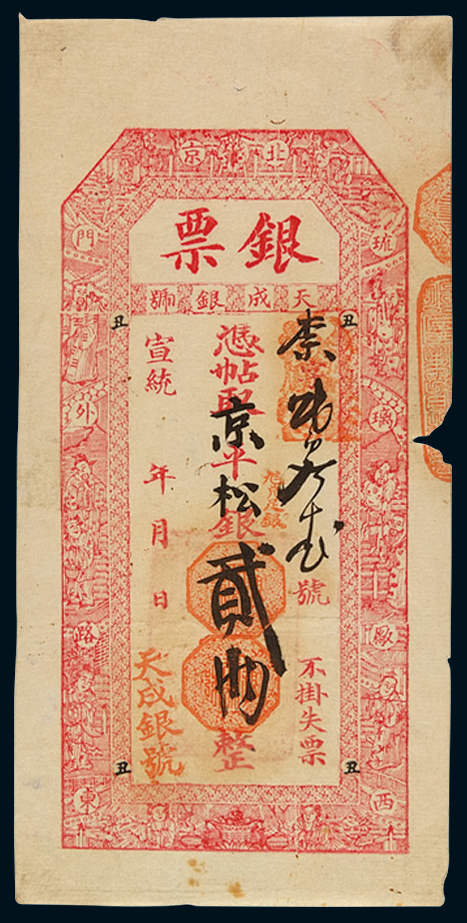 北京
琉璃厰西
門外路東
銀票
天成銀號
丑
丑
號
不掛失票
憑帖取京平松銀貳兩整
宣統 年 月 日
天成銀號
丑
丑